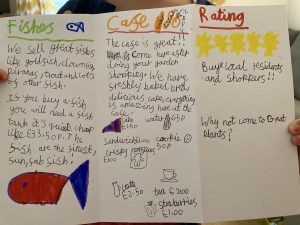 Fishes
We sell great fishes
like goldfish, clownfish
piranas, trout and lots
of other fish.
If you buy a fish
you will need a fish
tank it's quite cheap
like £33.50p. The
fish are the sweetest,
fun, fab fish!
Cafe
The case is great!!
Come here after
doing your garden
shopping! We have
freshly baked bread
delicious cake, everything
is amazing here at the
cafe!
water 65p
£100
Sandwich
cookie
50p
crisps
£100
cake
£2.50
tea £2.00
strawberries
£1.00
Rating
Buy local residents
and shoppers!!
Why not come to Great
plants?